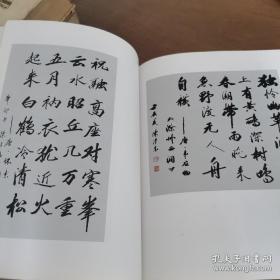 独怜幽草
上有黄鹂深树
春潮带雨晚来
急野渡无人舟
自横
滁州西涧
祝融高座对寒峯
云水昭丘几万重
五月衲衣犹近火
起来白鹤冷清松
孔夫子旧书网